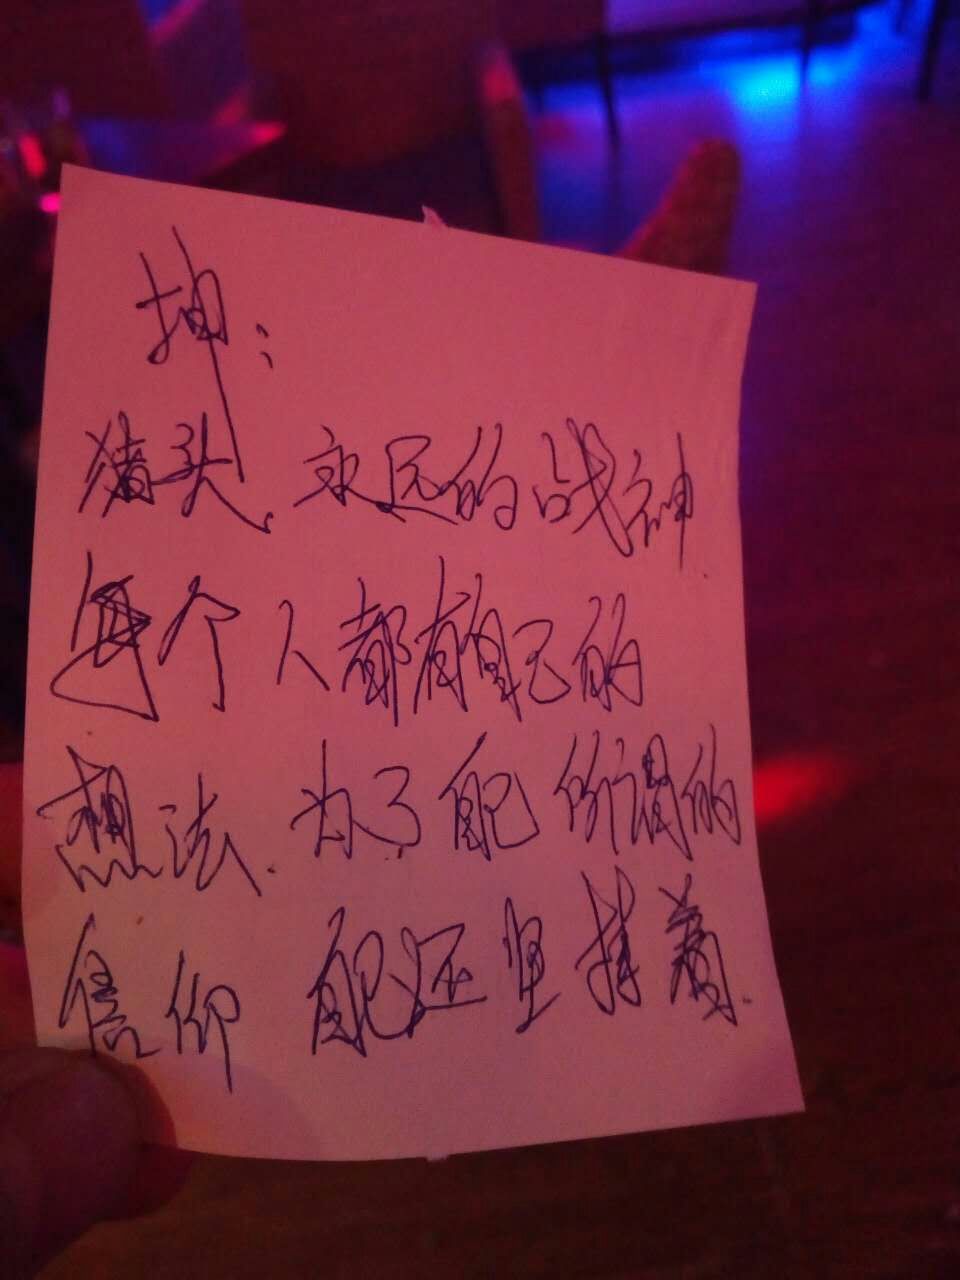 抻：
猪头、永远的战神.
每个人都有自己的
想法.为了配所谓的
信仰 配还坚持着.